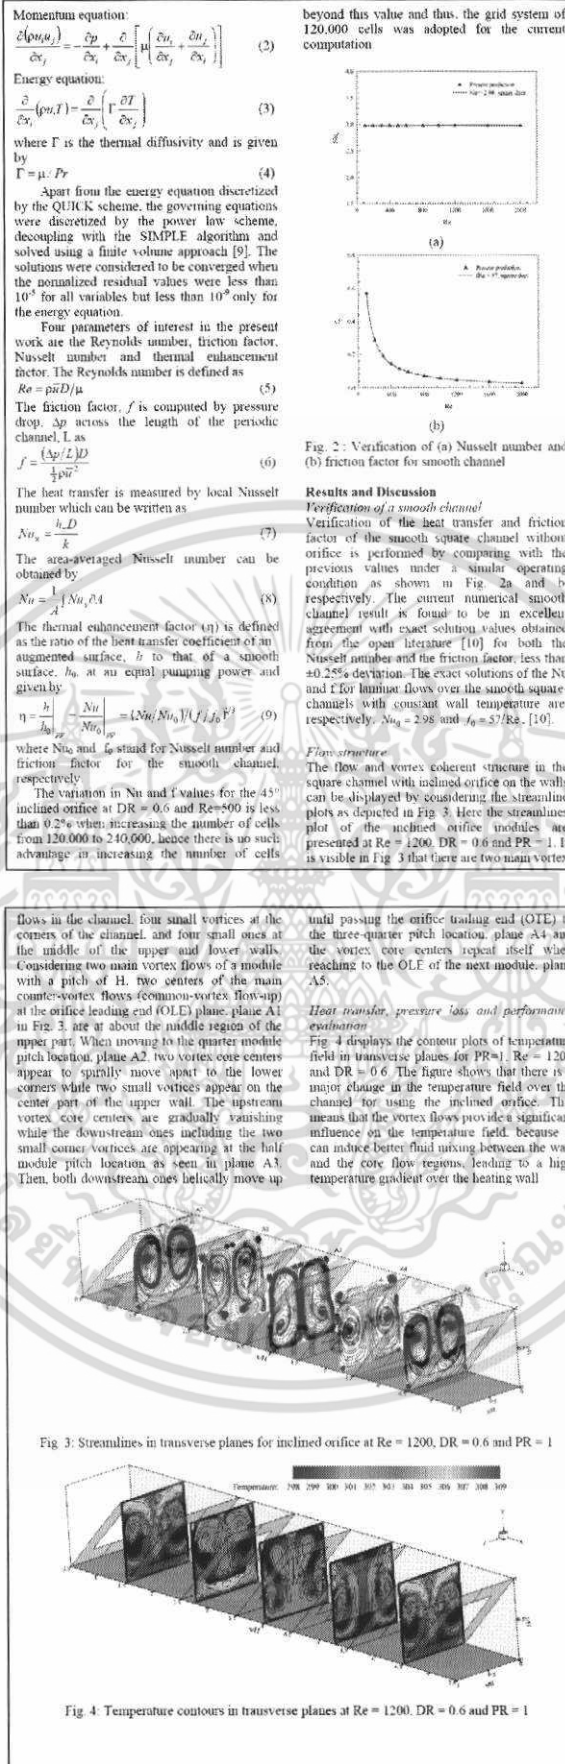 Momentum equation:
∂(ρuᵢuⱼ)/∂xⱼ = -∂p/∂xᵢ + ∂/∂xⱼ [ μ ( ∂uᵢ/∂xⱼ + ∂uⱼ/∂xᵢ ) ] (2)
Energy equation:
∂/∂xᵢ (ρuᵢT) = ∂/∂xⱼ ( Γ ∂T/∂xⱼ ) (3)
where Γ is the thermal diffusivity and is given
by
Γ = μ / Pr (4)
Apart from the energy equation discretized
by the QUICK scheme, the governing equations
were discretized by the power law scheme,
decoupling with the SIMPLE algorithm and
solved using a finite volume approach [9]. The
solutions were considered to be converged when
the normalized residual values were less than
10⁻⁵ for all variables but less than 10⁻⁹ only for
the energy equation.
Four parameters of interest in the present
work are the Reynolds number, friction factor,
Nusselt number and thermal enhancement
factor. The Reynolds number is defined as
Re = ρūD/μ (5)
The friction factor, f is computed by pressure
drop, Δp across the length of the periodic
channel, L as
f = (Δp/L)D / ½ρū² (6)
The heat transfer is measured by local Nusselt
number which can be written as
Nuₓ = hₓD / k (7)
The area-averaged Nusselt number can be
obtained by
Nu = 1/A ∫ Nuₓ ∂A (8)
The thermal enhancement factor (η) is defined
as the ratio of the heat transfer coefficient of an
augmented surface, h to that of a smooth
surface, h₀, at an equal pumping power and
given by
η = h/h₀ |pp = Nu/Nu₀ |pp = (Nu/Nu₀)/(f/f₀)^1/3 (9)
where Nu₀ and f₀ stand for Nusselt number and
friction factor for the smooth channel,
respectively
The variation in Nu and f values for the 45°
inclined orifice at DR = 0.6 and Re=500 is less
than 0.2% when increasing the number of cells
from 120,000 to 240,000, hence there is no such
advantage in increasing the number of cells
beyond this value and thus, the grid system of
120,000 cells was adopted for the current
computation
Present prediction
Nu = 2.98, square duct
Re
(a)
Present prediction
Re
(b)
Fig. 2 : Verification of (a) Nusselt number and
(b) friction factor for smooth channel
Results and Discussion
Verification of a smooth channel
Verification of the heat transfer and friction
factor of the smooth square channel without
orifice is performed by comparing with the
previous values under a similar operating
condition as shown in Fig. 2a and b,
respectively. The current numerical smooth
channel result is found to be in excellent
agreement with exact solution values obtained
from the open literature [10] for both the
Nusselt number and the friction factor, less than
±0.25% deviation. The exact solutions of the Nu
and f for laminar flows over the smooth square
channels with constant wall temperature are
respectively, Nu₀ = 2.98 and f₀ = 57/Re , [10].
Flow structure
The flow and vortex coherent structure in the
square channel with inclined orifice on the walls
can be displayed by considering the streamline
plots as depicted in Fig. 3. Here the streamlines
plot of the inclined orifice modules are
presented at Re = 1200, DR = 0.6 and PR = 1. I
is visible in Fig 3 that there are two main vortex
flows in the channel, four small vortices at the
corners of the channel, and four small ones at
the middle of the upper and lower walls.
Considering two main vortex flows of a module
with a pitch of H, two centers of the main
counter-vortex flows (common-vortex flow-up)
at the orifice leading end (OLE) plane, plane A1
in Fig. 3, are at about the middle region of the
upper part. When moving to the quarter module
pitch location, plane A2, two vortex core centers
appear to spirally move apart to the lower
corners while two small vortices appear on the
center part of the upper wall. The upstream
vortex core centers are gradually vanishing
while the downstream ones including the two
small corner vortices are appearing at the half
module pitch location as seen in plane A3.
Then, both downstream ones helically move up
until passing the orifice trailing end (OTE) i
the three-quarter pitch location, plane A4 an
the vortex core centers repeat itself whe
reaching to the OLE of the next module, plan
A5.
Heat transfer, pressure loss and performan
evaluation
Fig 4 displays the contour plots of temperatur
field in transverse planes for PR=1, Re = 120
and DR = 0.6. The figure shows that there is
major change in the temperature field over th
channel for using the inclined orifice. Th
means that the vortex flows provide a significan
influence on the temperature field, because
can induce better fluid mixing between the wa
and the core flow regions, leading to a hig
temperature gradient over the heating wall
Fig 3: Streamlines in transverse planes for inclined orifice at Re = 1200, DR = 0.6 and PR = 1
Temperature: 298 299 300 301 302 303 304 305 306 307 308 309
Fig. 4: Temperature contours in transverse planes at Re = 1200, DR = 0.6 and PR = 1